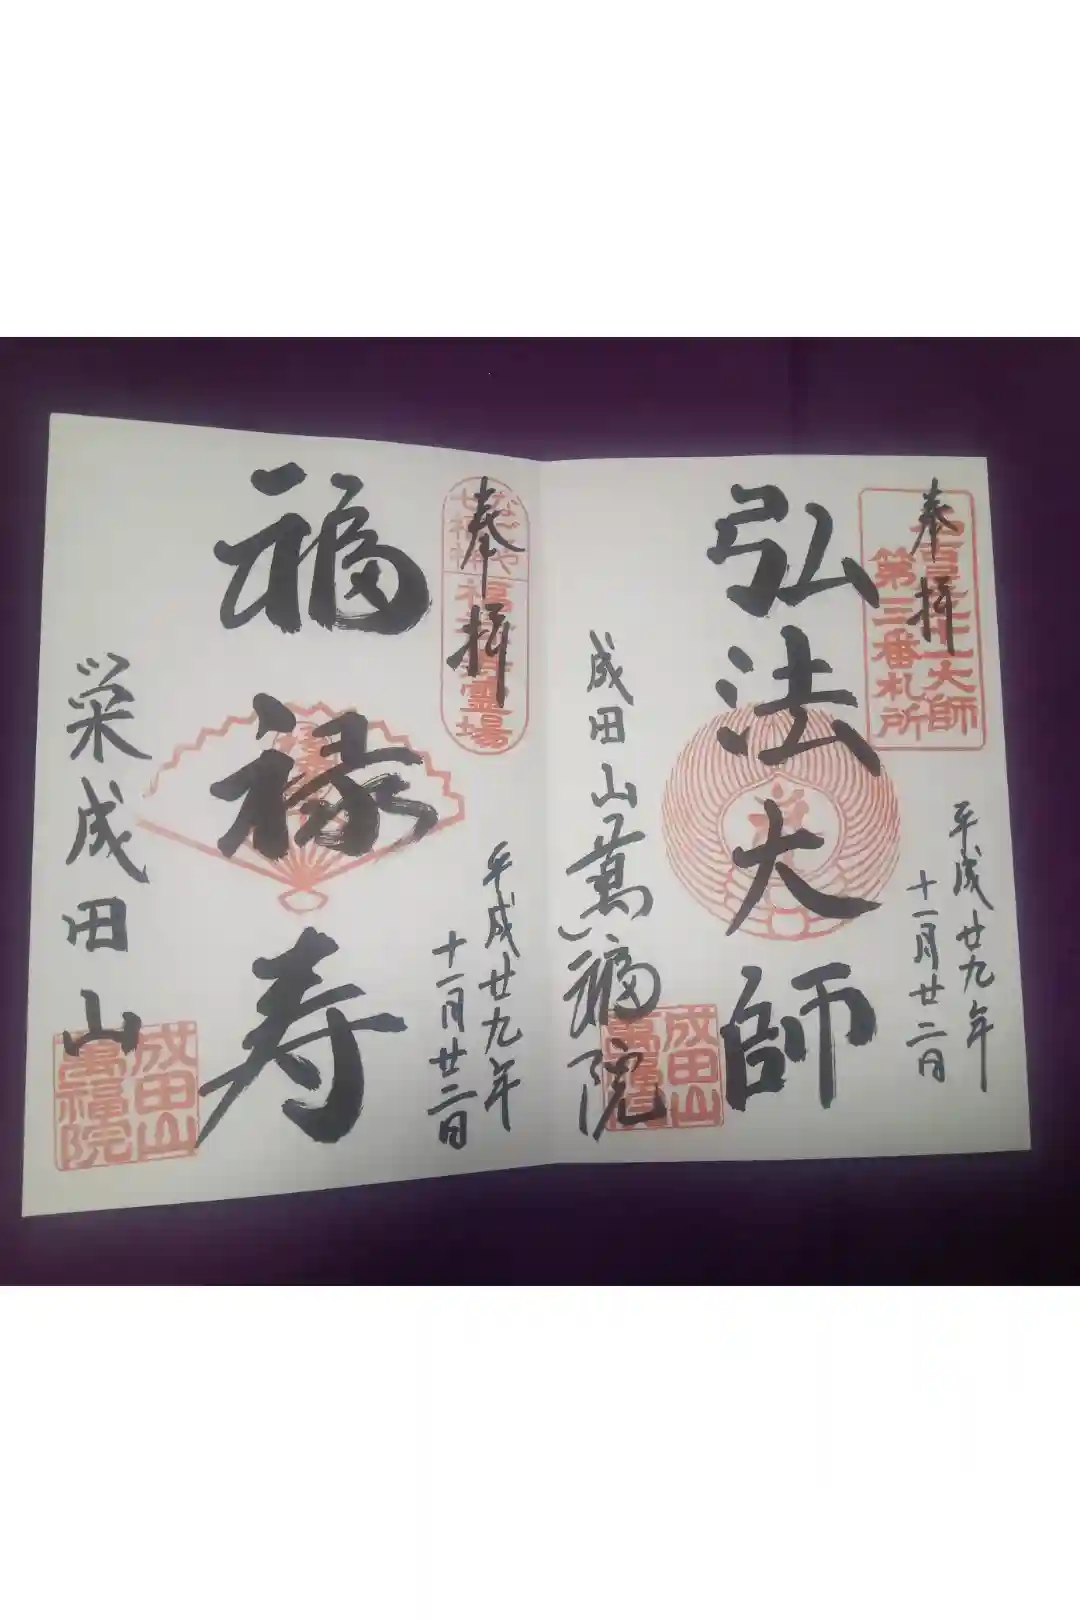 奉拝
第三番札所
弘法大師
平成廿九年
十一月廿二日
成田山萬福院
成田山
萬福院
奉拝
なごや
七福神
福禄寿霊場
福禄寿
平成廿九年
十一月廿二日
栄成田山
成田山
萬福院